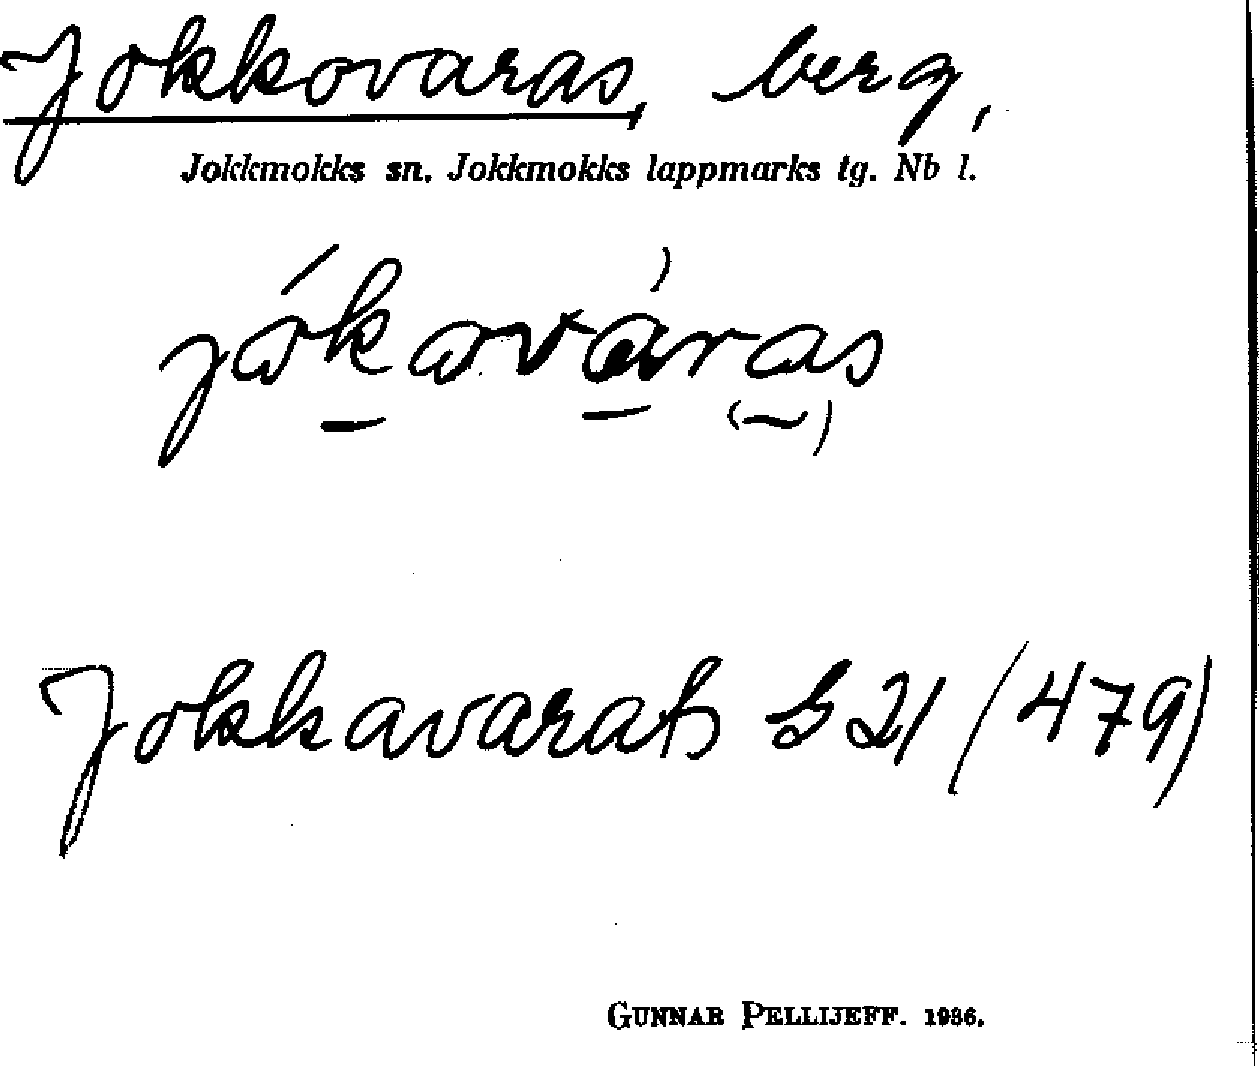 Jokkovaras, berg,
Jokkmokks sn. Jokkmokks lappmarks tg. Nb l.
jåkavàras
Jokkavarats G 21 (479)
GUNNAR PELLIJEFF. 1936.